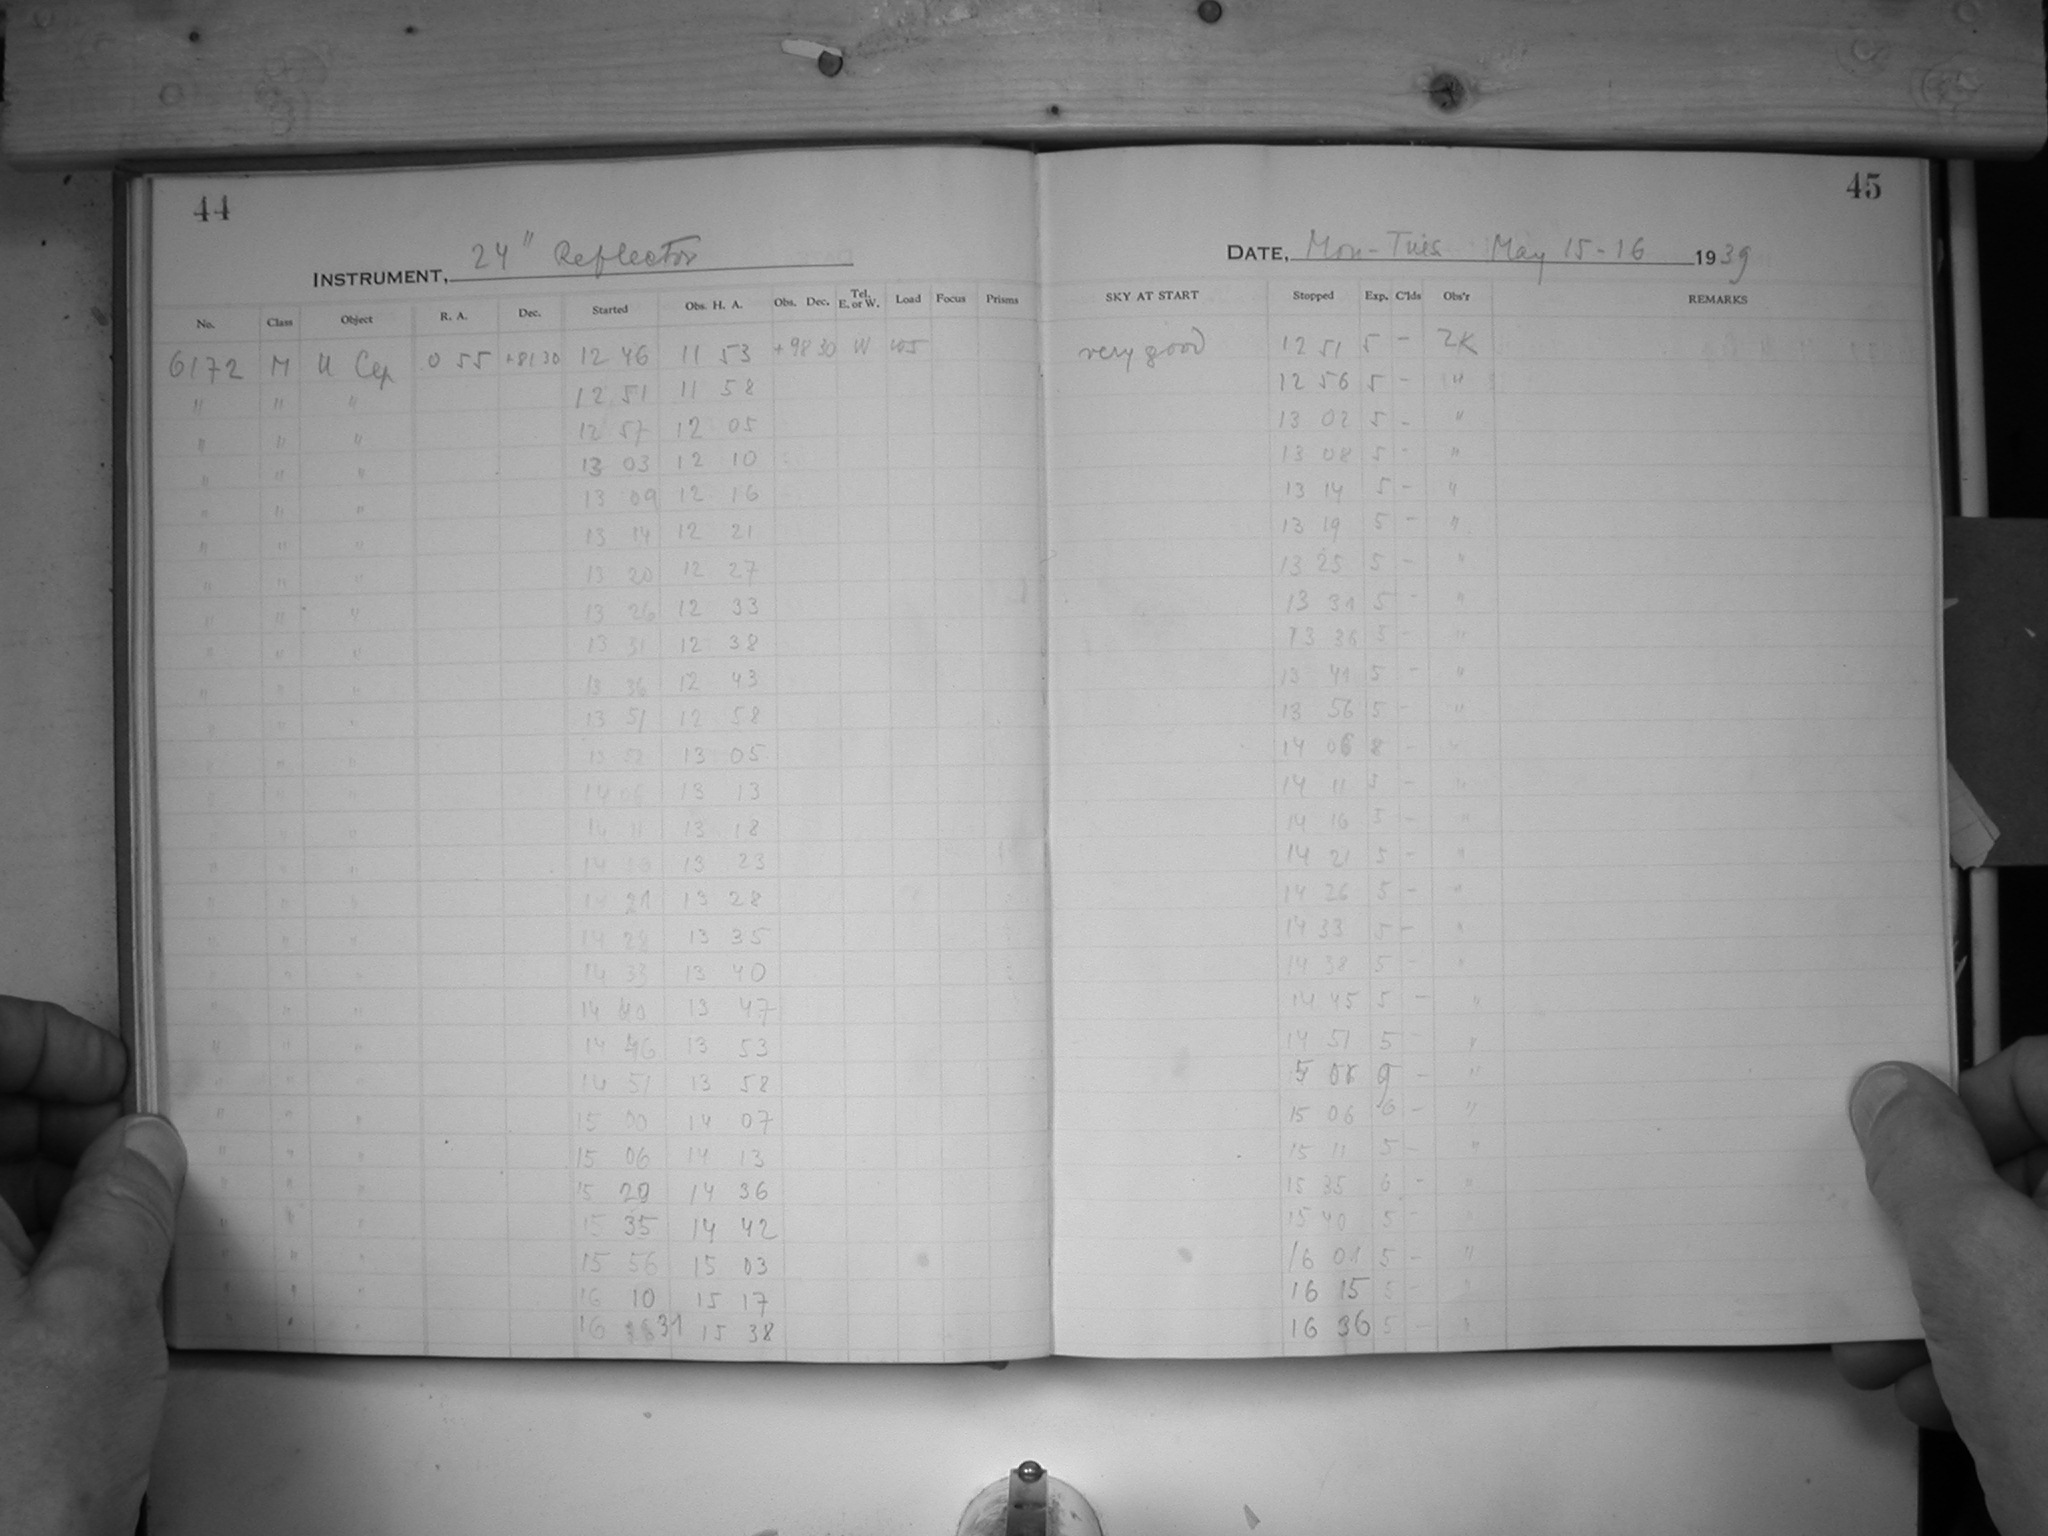 44
INSTRUMENT, 24" Reflector
No. Class Object R. A. Dec. Started Obs. H. A. Obs. Dec. Tel. E. or W. Load Focus Prisms
6172 M U Cep 0 55 +81 30 12 46 11 53 +98 30 W
" " " 12 51 11 58
" " " 12 57 12 05
" " " 13 03 12 10
" " " 13 09 12 16
" " " 13 14 12 21
" " " 13 20 12 27
" " " 13 26 12 33
" " " 13 31 12 38
" " " 13 36 12 43
" " " 13 51 12 58
" " " 13 58 13 05
" " " 14 06 13 13
" " " 14 11 13 18
" " " 14 13 23
" " " 14 21 13 28
" " " 14 28 13 35
" " " 14 33 13 40
" " " 14 40 13 47
" " " 14 46 13 53
" " " 14 51 13 58
" " " 15 00 14 07
" " " 15 06 14 13
" " " 15 29 14 36
" " " 15 35 14 42
" " " 15 56 15 03
" " " 16 10 15 17
" " " 16 31 15 38
45
DATE, Mon-Tues May 15-16 1939
SKY AT START Stopped Exp. C'lds Obs'r REMARKS
very good 12 51 5 - ZK
12 56 5 - "
13 02 5 - "
13 08 5 - "
13 14 5 - "
13 19 5 - "
13 25 5 - "
13 31 5 - "
13 36 5 - "
13 41 5 - "
13 56 5 - "
14 06 8 - "
14 11 5 - "
14 16 5 - "
14 21 5 - "
14 26 5 - "
14 33 5 - "
14 38 5 - "
14 45 5 - "
14 51 5 - "
9 - "
15 06 6 - "
15 11 5 - "
15 35 6 - "
15 40 5 - "
16 01 5 - "
16 15 5 - "
16 36 5 - "